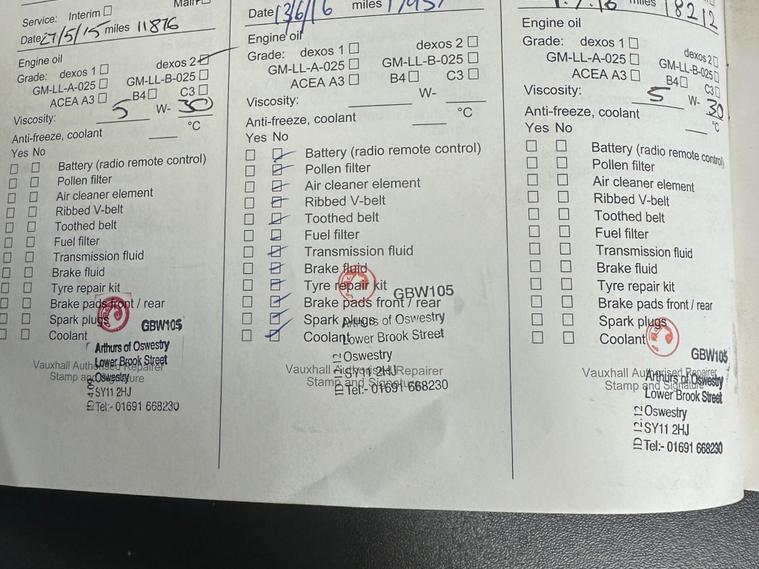 Service: Interim
Date 27/5/15 miles 11876
Engine oil
Grade: dexos 1 dexos 2
GM-LL-A-025 GM-LL-B-025
ACEA A3 B4 C3
Viscosity: 5 W- 30
Anti-freeze, coolant °C
Yes No
Battery (radio remote control)
Pollen filter
Air cleaner element
Ribbed V-belt
Toothed belt
Fuel filter
Transmission fluid
Brake fluid
Tyre repair kit
Brake pads front / rear
Spark plugs
Coolant
GBW105
Arthurs of Oswestry
Lower Brook Street
Oswestry
SY11 2HJ
Tel:- 01691 668230
Vauxhall Authorised Repairer
Stamp and Signature
Date 13/6/16 miles
Engine oil
Grade: dexos 1 dexos 2
GM-LL-A-025 GM-LL-B-025
ACEA A3 B4 C3
Viscosity: W-
Anti-freeze, coolant °C
Yes No
Battery (radio remote control)
Pollen filter
Air cleaner element
Ribbed V-belt
Toothed belt
Fuel filter
Transmission fluid
Brake fluid
Tyre repair kit
Brake pads front / rear
Spark plugs
Coolant
GBW105
Arthurs of Oswestry
Lower Brook Street
Oswestry
SY11 2HJ
Tel:- 01691 668230
Vauxhall Authorised Repairer
Stamp and Signature
miles 18212
Engine oil
Grade: dexos 1 dexos 2
GM-LL-A-025 GM-LL-B-025
ACEA A3 B4 C3
Viscosity: 5 W- 30
Anti-freeze, coolant °C
Yes No
Battery (radio remote control)
Pollen filter
Air cleaner element
Ribbed V-belt
Toothed belt
Fuel filter
Transmission fluid
Brake fluid
Tyre repair kit
Brake pads front / rear
Spark plugs
Coolant
GBW105
Vauxhall Authorised Repairer
Stamp and Signature
Arthurs of Oswestry
Lower Brook Street
Oswestry
SY11 2HJ
Tel:- 01691 668230